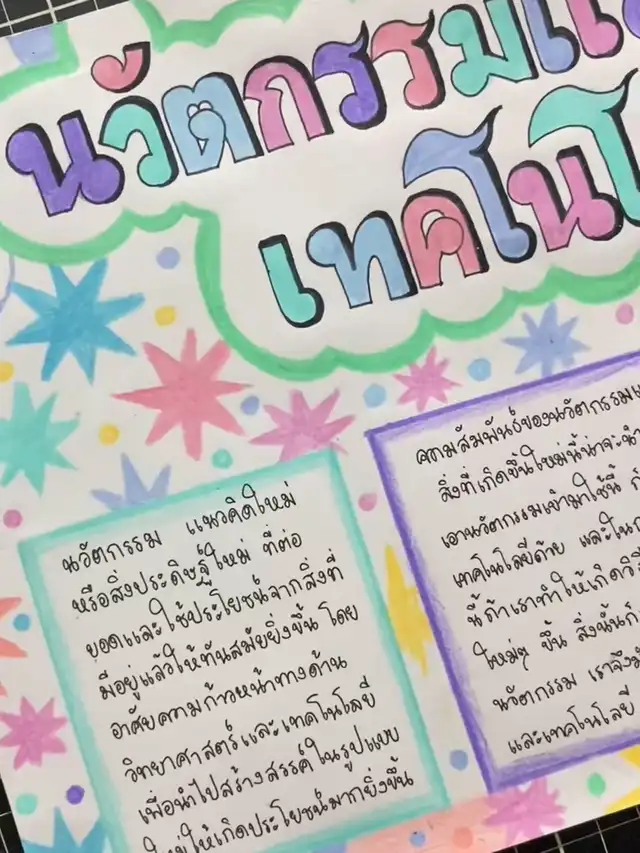 นวัตกรรมแ
เทคโนโ
นวัตกรรม แนวคิดใหม่
หรือสิ่งประดิษฐ์ใหม่ ที่ต่อ
ยอดและใช้ประโยชน์จากสิ่งที่
มีอยู่แล้วให้ทันสมัยยิ่งขึ้น โดย
อาศัยความก้าวหน้าทางด้าน
วิทยาศาสตร์และเทคโนโลยี
เพื่อนำไปสร้างสรรค์ในรูปแบบ
ใหม่ให้เกิดประโยชน์มากยิ่งขึ้น
ความสัมพันธ์ของนวัตกรรมแ
สิ่งที่เกิดขึ้นใหม่นี้น่าจะนำ
เอานวัตกรรมเข้ามาใช้นี้ ก
เทคโนโลยีด้วย และใน
นี้ถ้าเราทำให้เกิดวิธี
ใหม่ๆ ขึ้น สิ่งนั้นก็
นวัตกรรม เราจึง
และเทคโนโลยี